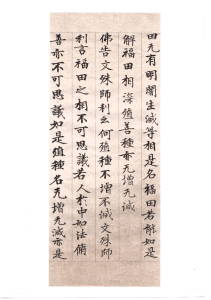 田无有明闇生滅等相是名福田若解如是
解福田相深殖善種亦无增无減
佛告文殊師利云何殖種不增不減文殊師
利言福田之相不可思議若人於中如法脩
善亦不可思議如是殖種名无增无減亦是